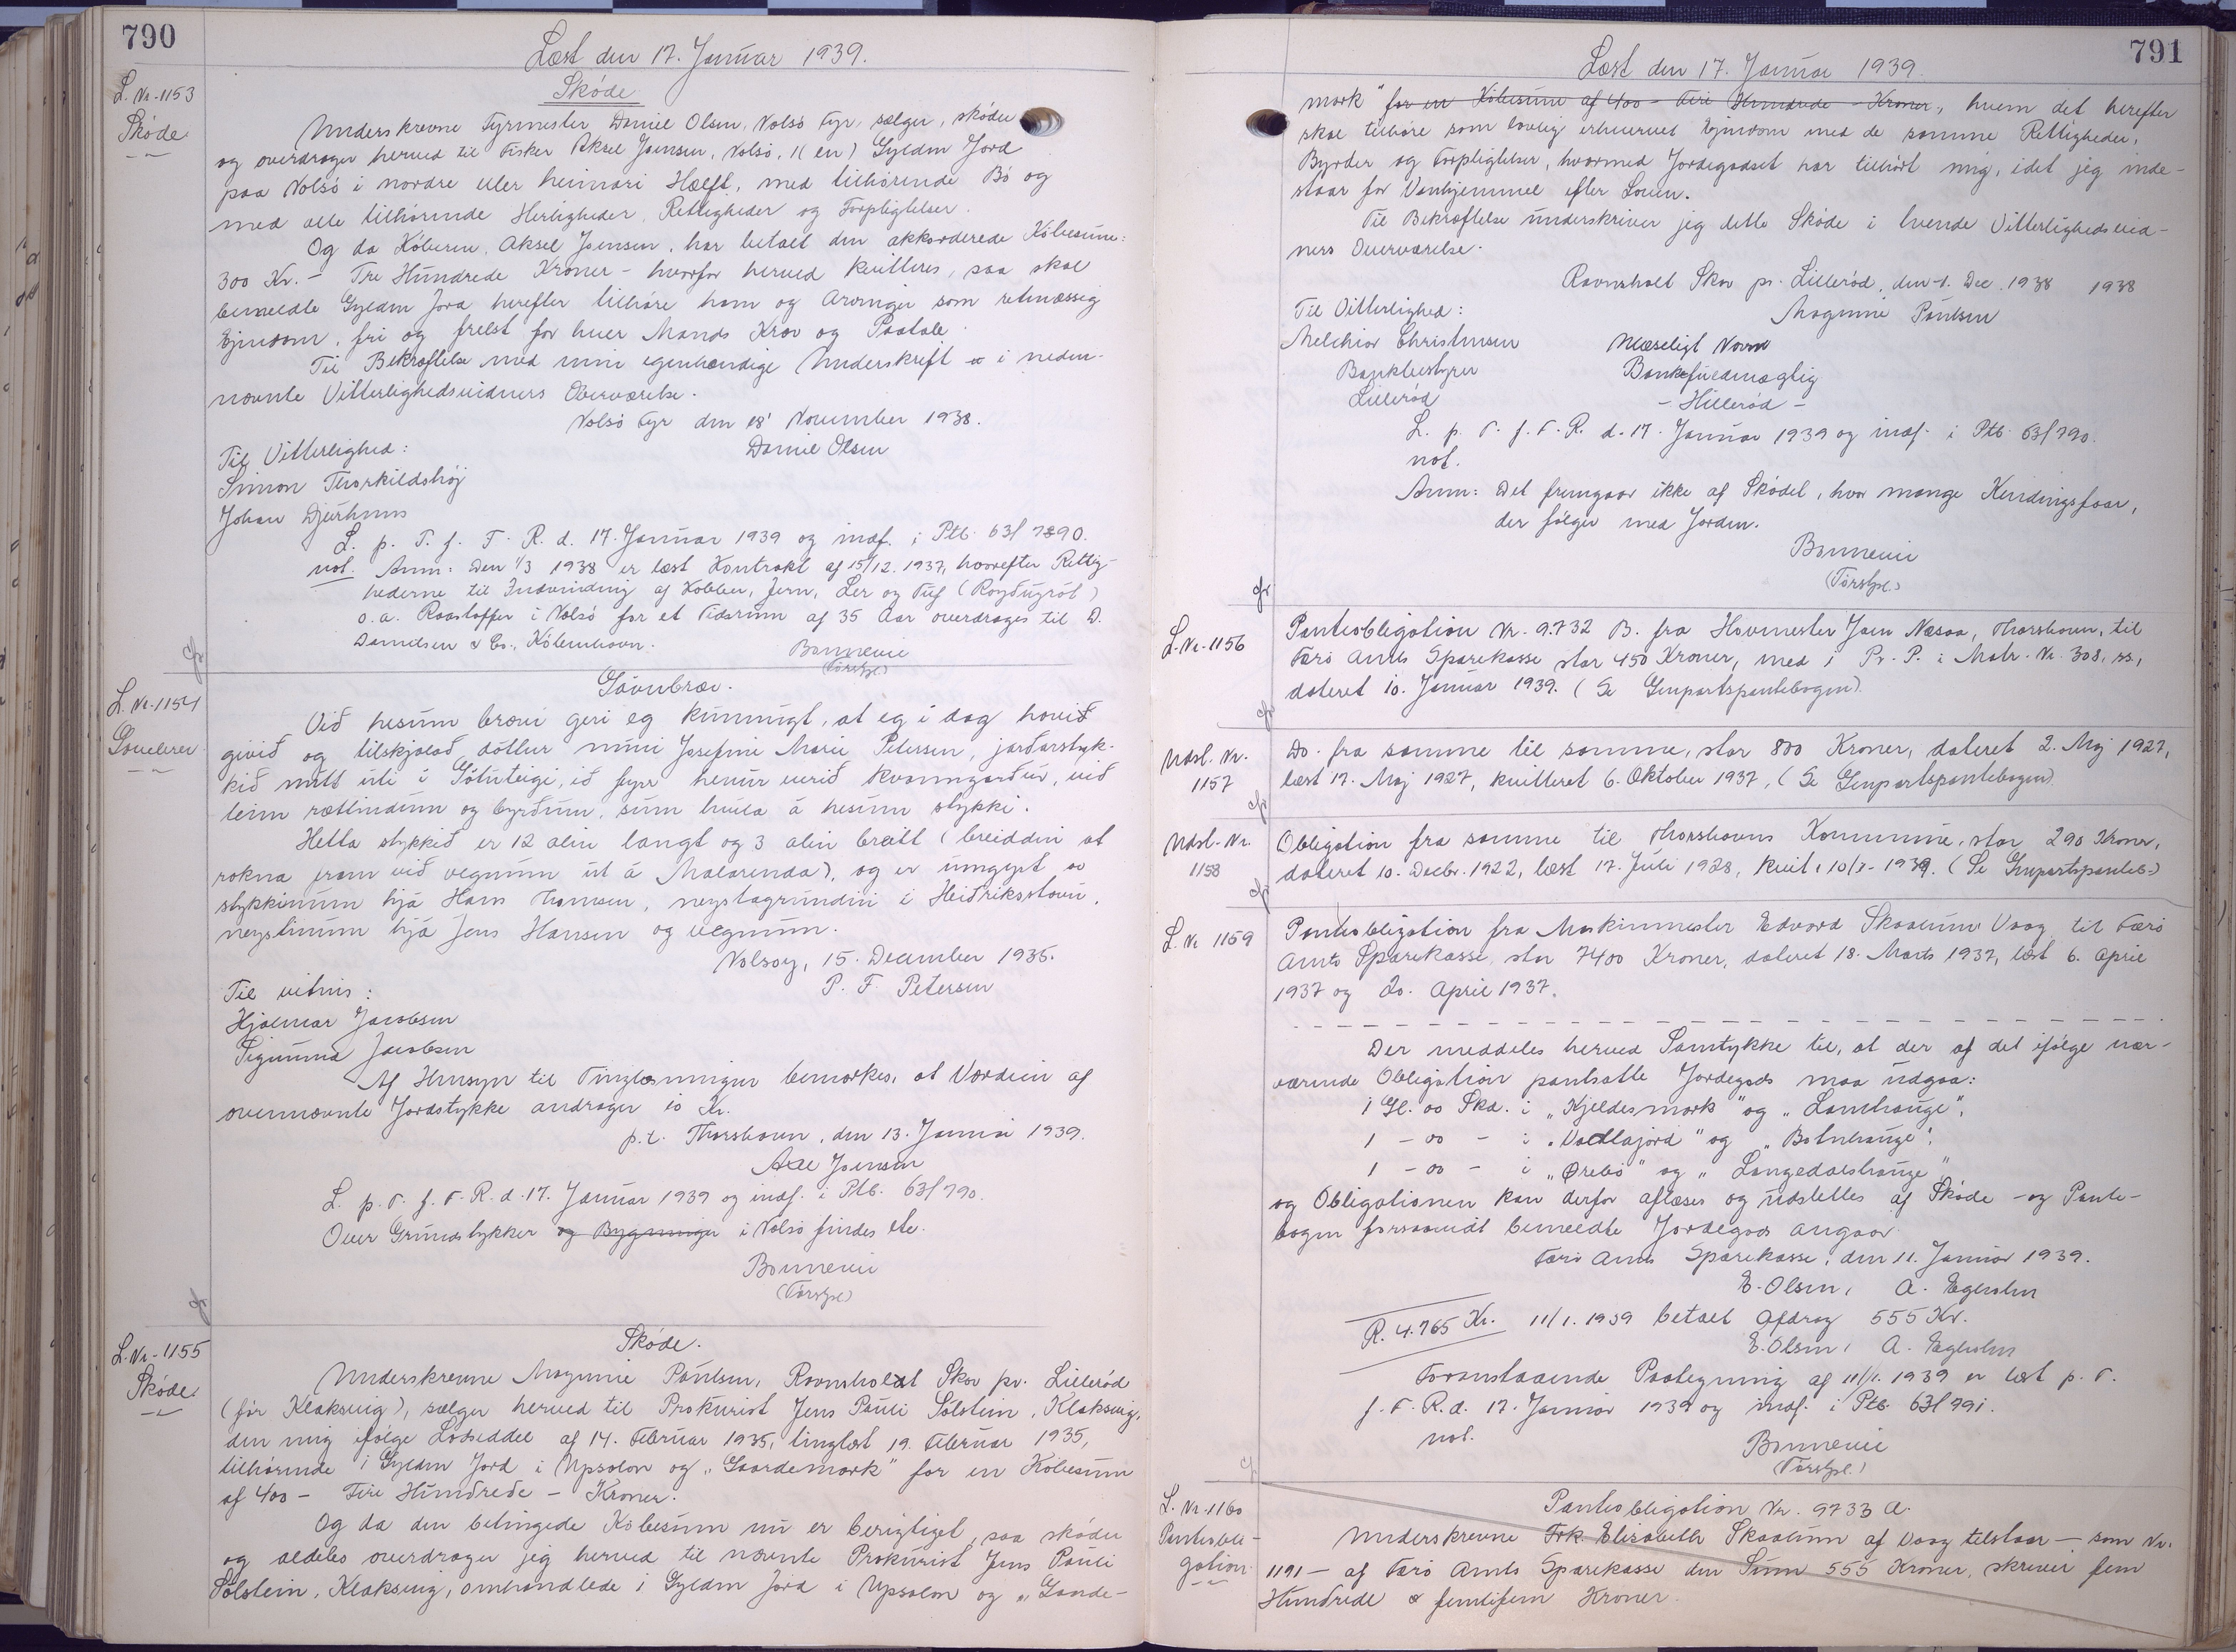 790
Læst den 17. Januar 1939.
L. Nr. 1153
Skøde
Skøde
Underskrevne Fyrmester Daniel Olsen, Nolsø Fyr, sælger, skøder
og overdrager herved til Fisker Aksel Joensen, Nolsø, 1 (en) Gylden Jord
paa Nolsø i nordre eller heimari Hælft, med tilhørende Bø og
med alle tilhørende Herligheder, Rettigheder og Forpligtelser.
Og da Køberen, Aksel Joensen, har betalt den akkorderede Købesum:
300 Kr. - Tre Hundrede Kroner - hvorfor herved kvitteres, saa skal
bemeldte Gylden Jord herefter tilhøre ham og Arvinger som retmæssig
Ejendom, fri og frelst for hver Mands Krav og Paatale.
Til Bekræftelse med min egenhændige Underskrift i neden-
nævnte Vitterlighedsvidners Overværelse.
Nolsø Fyr den 18' November 1938.
Til Vitterlighed:
Daniel Olsen
Simon Thorkildshøj
Johan Djurhuus
L. p. T. f. F. R. d. 17. Januar 1939 og indf. i Ptb. 63/790.
not. Anm: Den 1/3 1938 er læst Kontrakt af 15/12. 1937, hvorefter Rettig-
hederne til Indvinding af Kobber, Jern, Ler og Tuf (Royðugrót)
o. a. Raastoffer i Nolsø for et Tidsrum af 35 Aar overdrages til D.
Danielsen & Co., København.
Bonnevie
(Torshpl.)
L. Nr. 1154
Gavebrev
Gávubræv.
Við hesum brævi geri eg kunnugt, at eg í dag havið
givið og tilskjølað dóttur míni Josefine Marie Petersen, jarðarstyk-
kið mítt úti í Gøtuteigi, ið fyrr hevur verið kvanngarður, við
teim rættindum og byrðum, sum hvíla á hesum stykki.
Hetta stykkið er 12 alin langt og 3 alin breitt (breiddin at
rokna fram við vegnum út á Malarenda), og er umgyrt av
stykkinum hjá Hans Thomsen, neystagrundini í Heiðriksstovu,
neystinum hjá Jens Hansen og vegnum.
Nolsoy, 15. December 1936.
Til vitnis:
P. F. Petersen
Hjalmar Jacobsen
Sigmund Jacobsen
Af Hensyn til Tinglæsningen bemærkes, at Værdien af
ovennævnte Jordstykke andrager 10 Kr.
p.t. Thorshavn, den 13. Januar 1939.
Axel Joensen
L. p. T. f. F. R. d. 17. Januar 1939 og indf. i Ptb. 63/790.
Over Grundstykker og Bygninger i Nolsø findes etc.
Bonnevie
(Torshpl.)
L. Nr. 1155
Skøde
Skøde.
Underskrevne Mogunie Poulsen, Ravnsholt Skov pr. Lillerød
(før Klaksvig), sælger herved til Prokurist Jens Pauli Sólstein, Klaksvig,
den mig ifølge Lodseddel af 14. Februar 1935, tinglæst 19. Februar 1935,
tilhørende 1 Gylden Jord i Upsalon og "Gaardemark" for en Købesum
af 400 - Fire Hundrede - Kroner.
Og da den betingede Købesum nu er berigtiget, saa skøder
og aldeles overdrager jeg herved til nævnte Prokurist Jens Pauli
Sólstein, Klaksvig, omhandlede 1 Gylden Jord i Upsalon og "Gaarde-
791
Læst den 17. Januar 1939.
mark" for en Købesum af 400 - Fire Hundrede - Kroner, hvem det herefter
skal tilhøre som lovlig erhvervet Ejendom med de samme Rettigheder,
Byrder og Forpligtelser, hvormed Jordegodset har tilhørt mig, idet jeg inde-
staar for Vanhjemmel efter Loven.
Til Bekræftelse underskriver jeg dette Skøde i tvende Vitterlighedsvid-
ners Overværelse.
Ravnsholt Skov pr. Lillerød, den 1. Dec. 1938 1938
Til Vitterlighed:
Mogunie Poulsen
Melchior Christensen
Ulæseligt Navn
Bankbestyrer
Bankfuldmægtig
Lillerød
- Hillerød -
L. p. T. f. F. R. d. 17. Januar 1939 og indf. i Ptb. 63/790.
not.
Anm: Det fremgaar ikke af Skødet, hvor mange Kendingsfaar,
der følger med Jorden.
Bonnevie
(Torshpl.)
L. Nr. 1156
Panteobligation Nr. 9.732 B. fra Havnmester Joen Næsaa, Thorshavn, til
Færø Amts Sparekasse stor 450 Kroner, med 1 Pr. P. i Matr. Nr. 308, ss,
dateret 10. Januar 1939. (Se Genpartspantebogen).
Udsl. Nr. 1157
Do. fra samme til samme, stor 800 Kroner, dateret 2. Maj 1927,
læst 17. Maj 1927, kvitteret 6. Oktober 1937, (Se Genpartspantebogen)
Udsl. Nr. 1158
Obligation fra samme til Thorshavns Kommune, stor 290 Kroner,
dateret 10. Decbr. 1922, læst 17. Juli 1928, kvit. 10/1- 1939. (Se Genpartspanteb.)
L. Nr 1159
Panteobligation fra Maskinmester Edvard Skaalum Vaag til Færø
Amts Sparekasse, stor 7400 Kroner, dateret 18. Marts 1937, læst 6. April
1937 og 20. April 1937.
Der meddeles herved Samtykke til, at der af det ifølge nær-
værende Obligation pantsatte Jordegods maa udgaa:
1 Gl. 00 Skd. i "Kjeldesmark" og "Lamhauge".
1 - 00 - i "Vadlajord" og "Botnhauge".
1 - 00 - i "Ørebø" og "Langedalshauge"
og Obligationen kan derfor aflæses og udslettes af Skøde - og Pante-
bogen forsaavidt bemeldte Jordegods angaar.
Færø Amts Sparekasse, den 11. Januar 1939.
E. Olsen, A. Egholm
R. 4.765 Kr. 11/1. 1939 betalt Afdrag 555 Kr.
E. Olsen, A. Egholm
Foranstaaende Paategning af 11/1. 1939 er læst p. T.
f. F. R. d. 17. Januar 1939 og indf. i Ptb. 63/791.
not.
Bonnevie
(Torshpl.)
L. Nr. 1160
Panteobli-
gation
Panteobligation Nr. 9733 A.
Underskrevne Frk. Elisabeth Skaalum af Vaag tilstaar - som Nr.
1191 - af Færø Amts Sparekasse den Sum 555 Kroner, skriver fem
Hundrede & femtifem Kroner.